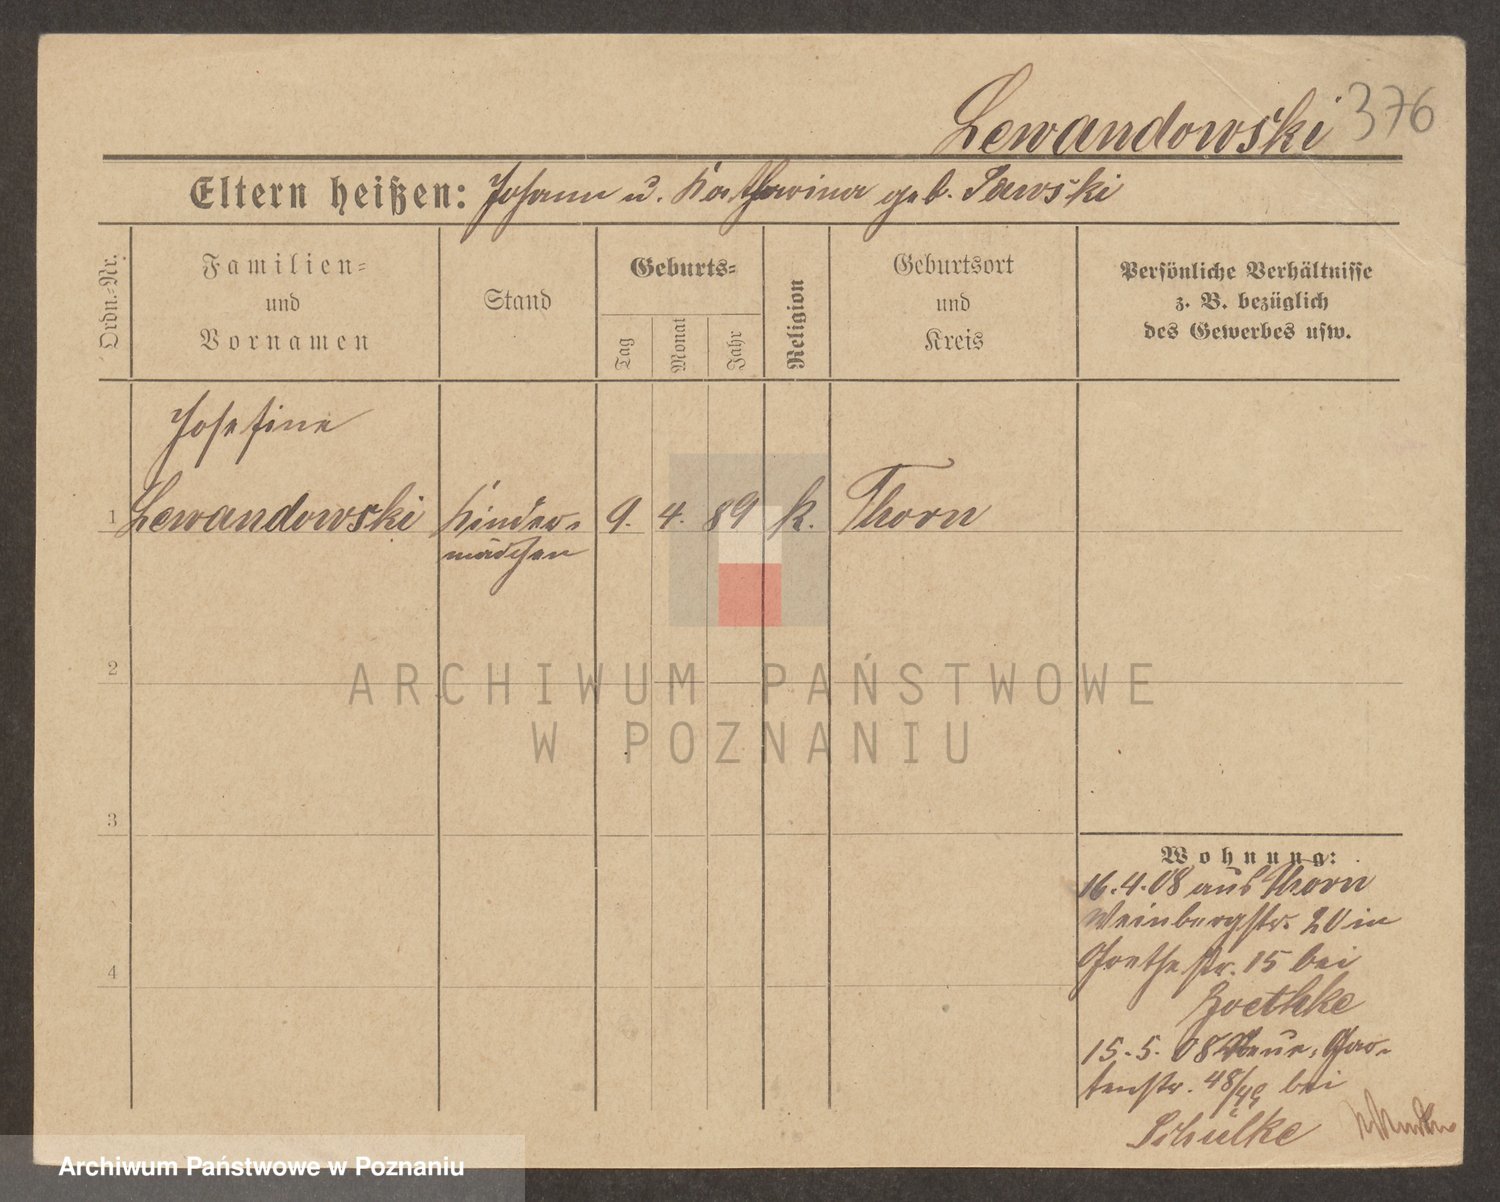 Lewandowski 376
Eltern heißen: Johann u. Katharina geb. Pawski
Ordn.-Nr.
Familien-
und
Vornamen
Stand
Geburts-
Tag
Monat
Jahr
Religion
Geburtsort
und
Kreis
Persönliche Verhältnisse
z. B. bezüglich
des Gewerbes usw.
Josefine
1 Lewandowski Kinder- 9. 4. 89 k. Thorn
mädchen
2
3
4
Wohnung:
16.4.08 aus Thorn
Weinbergstr. 20 in
Goethestr. 15 bei
Goethke
15.5.08 Neue Gar-
tenstr. 48/49 bei
Schülke
ARCHIWUM PAŃSTWOWE
W POZNANIU
Archiwum Państwowe w Poznaniu